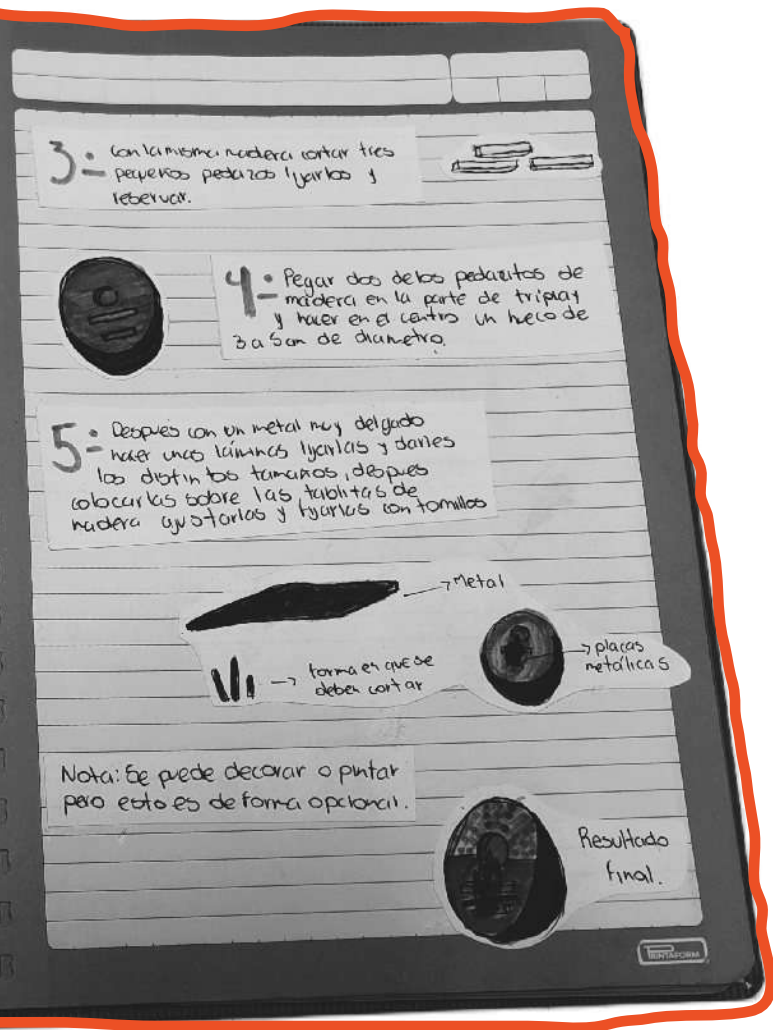 3.- Con la misma madera cortar tres
pequeños pedazos lijarlos y
reservar.
4.- Pegar dos de los pedazitos de
madera en la parte de triplay
y hacer en el centro un hueco de
3 a 5cm de diametro.
5.- Después con un metal muy delgado
hacer unas láminas lijarlas y darles
los distintos tamaños, despues
colocarlas sobre las tablitas de
madera ajustarlas y fijarlas con tornillos
Metal
forma en que se
deben cortar
placas
metálicas
Nota: Se puede decorar o pintar
pero esto es de forma opcional.
Resultado
final.
PRINTAFORM